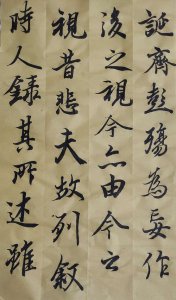 誕齊彭殤為妄作
後之視今亦由今之
視昔悲夫故列叙
時人録其所述雖